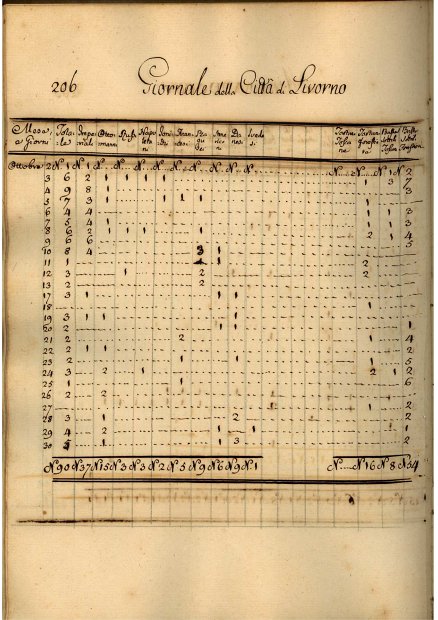 206 Giornale della Città di Livorno
Totale Imperiali Ottomanni Russi Napoletani Francesi Danesi Toscana
e Giorni
Ottobre 2 N 1 N 1 N N N N N N N N N N N 1 N 2
3 6 2 1 1 1 1 1 3 7
4 9 8 1 3
5 7 3 1 1 1 1
6 4 4 1 3
7 5 4 1 1 3
8 6 2 1 1 1 1 2 1 4
9 6 6 5
10 8 4 3 1
11 1 1 2
12 3 1 2 2
13 2 2
17 3 1 1 1
18 1
19 1
20 1 1
21 2 2 1 4
22 2 1 1 2
23 2 1 1 5
24 3 2 1 2 1 2
25 1 1 6
26 2 2
27 1 2
28 3 1 2
29 4 2 1 1 1
30 5 1 1 3 2
N 90 N 37 N 15 N 3 N 3 N 2 N 5 N 9 N 6 N 9 N 1 N N 16 N 8 N 54